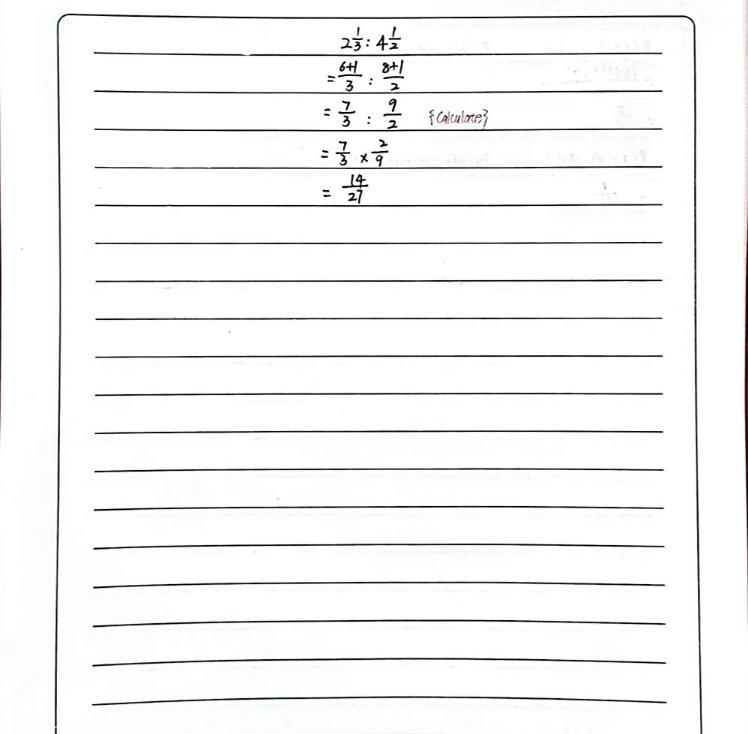 2 1/3 : 4 1/2
= 6+1/3 : 8+1/2
= 7/3 : 9/2 {Calculate}
= 7/3 × 2/9
= 14/27